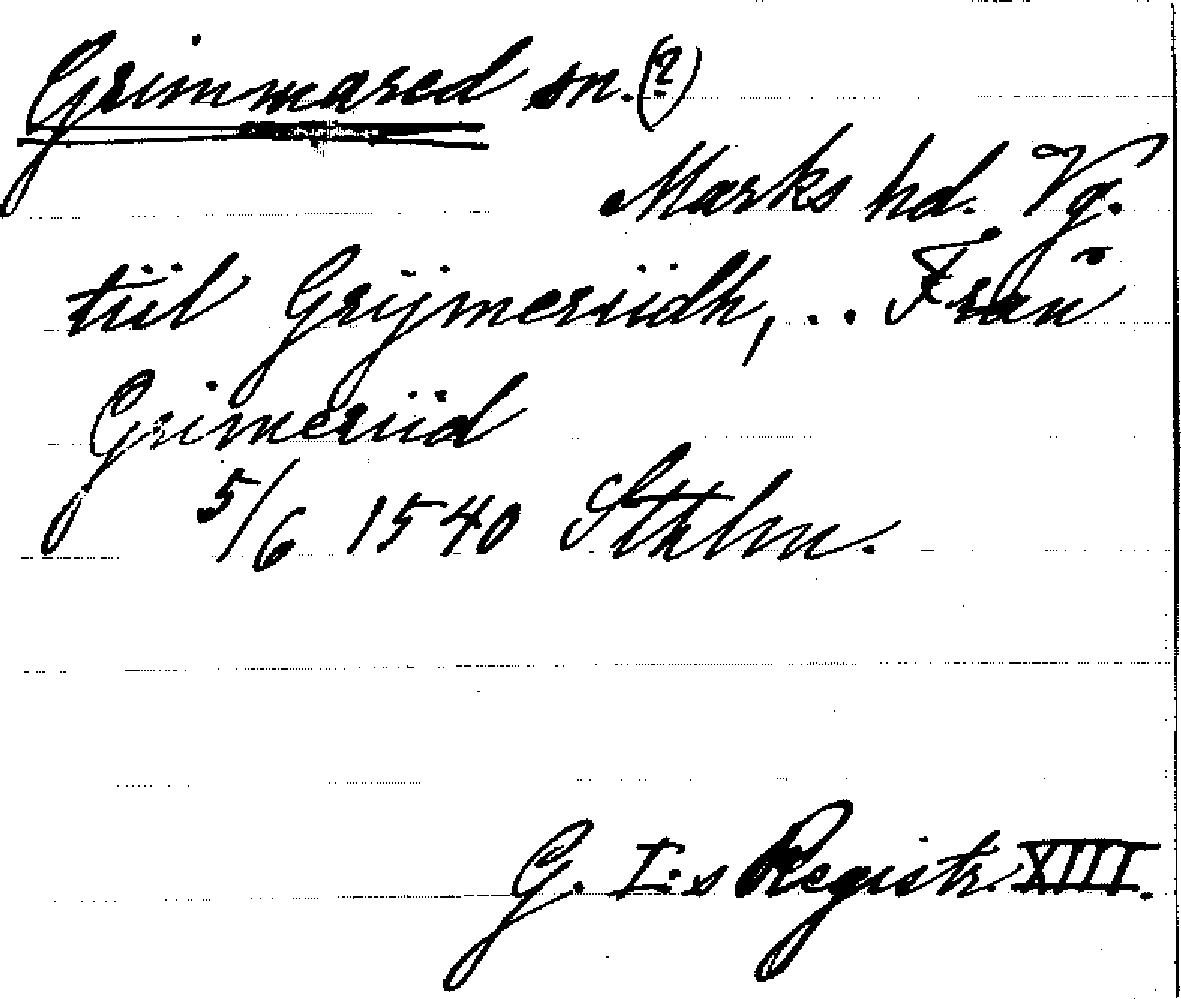 Grimmared sn.(?)
Marks hd. Vg.
tiil Grijmeriidh, .. Frãn
Grimeriid
5/6 1540 Sthlm.
G. I:s Registr. XIII.